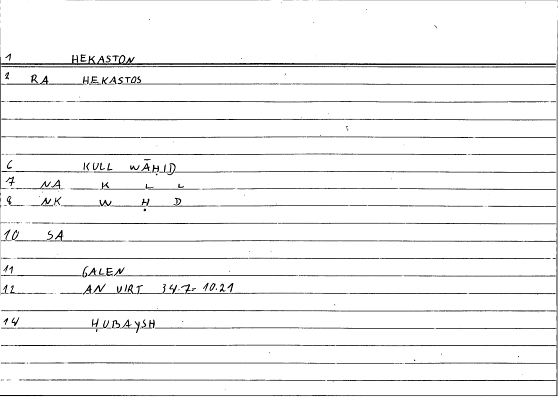 1 HEKASTON
2 RA HEKASTOS
6 KULL WĀḤID
7 NA K L L
8 NK W Ḥ D
10 SA
11 GALEN
12 AN VIRT 34.7- 10.21
14 ḤUBAYSH